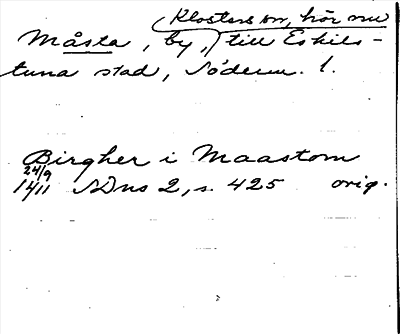 Klosters sn, hör nu
Måsta, by, till Eskils-
tuna stad, Söderm. l.
Birgher i Maastom
24/9
1411 SDns 2, s. 425 orig.